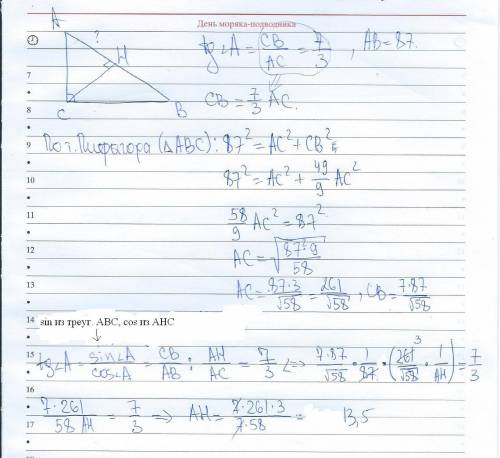 День моряка-подводника
A
?
H
C
B
1
tg∠A = CB/AC = 7/3 , AB=87.
7
CB = 7/3 AC.
8
9
По т. Пифагора (△ABC): 87² = AC² + CB²
10
87² = AC² + 49/9 AC²
11
58/9 AC² = 87²
12
AC = √(87²·9/58)
13
AC = 87·3/√58 = 261/√58 , CB = 7·87/√58
14
sin из треуг. ABC, cos из AHC
15
tg∠A = sin∠A/cos∠A = CB/AB : AH/AC = 7/3 <=> 7·87/√58 · 1/87 · (261/√58 · 1/AH) = 7/3
3
16
7·261/58 AH = 7/3 => AH = 7·261·3/7·58 = 13,5
17